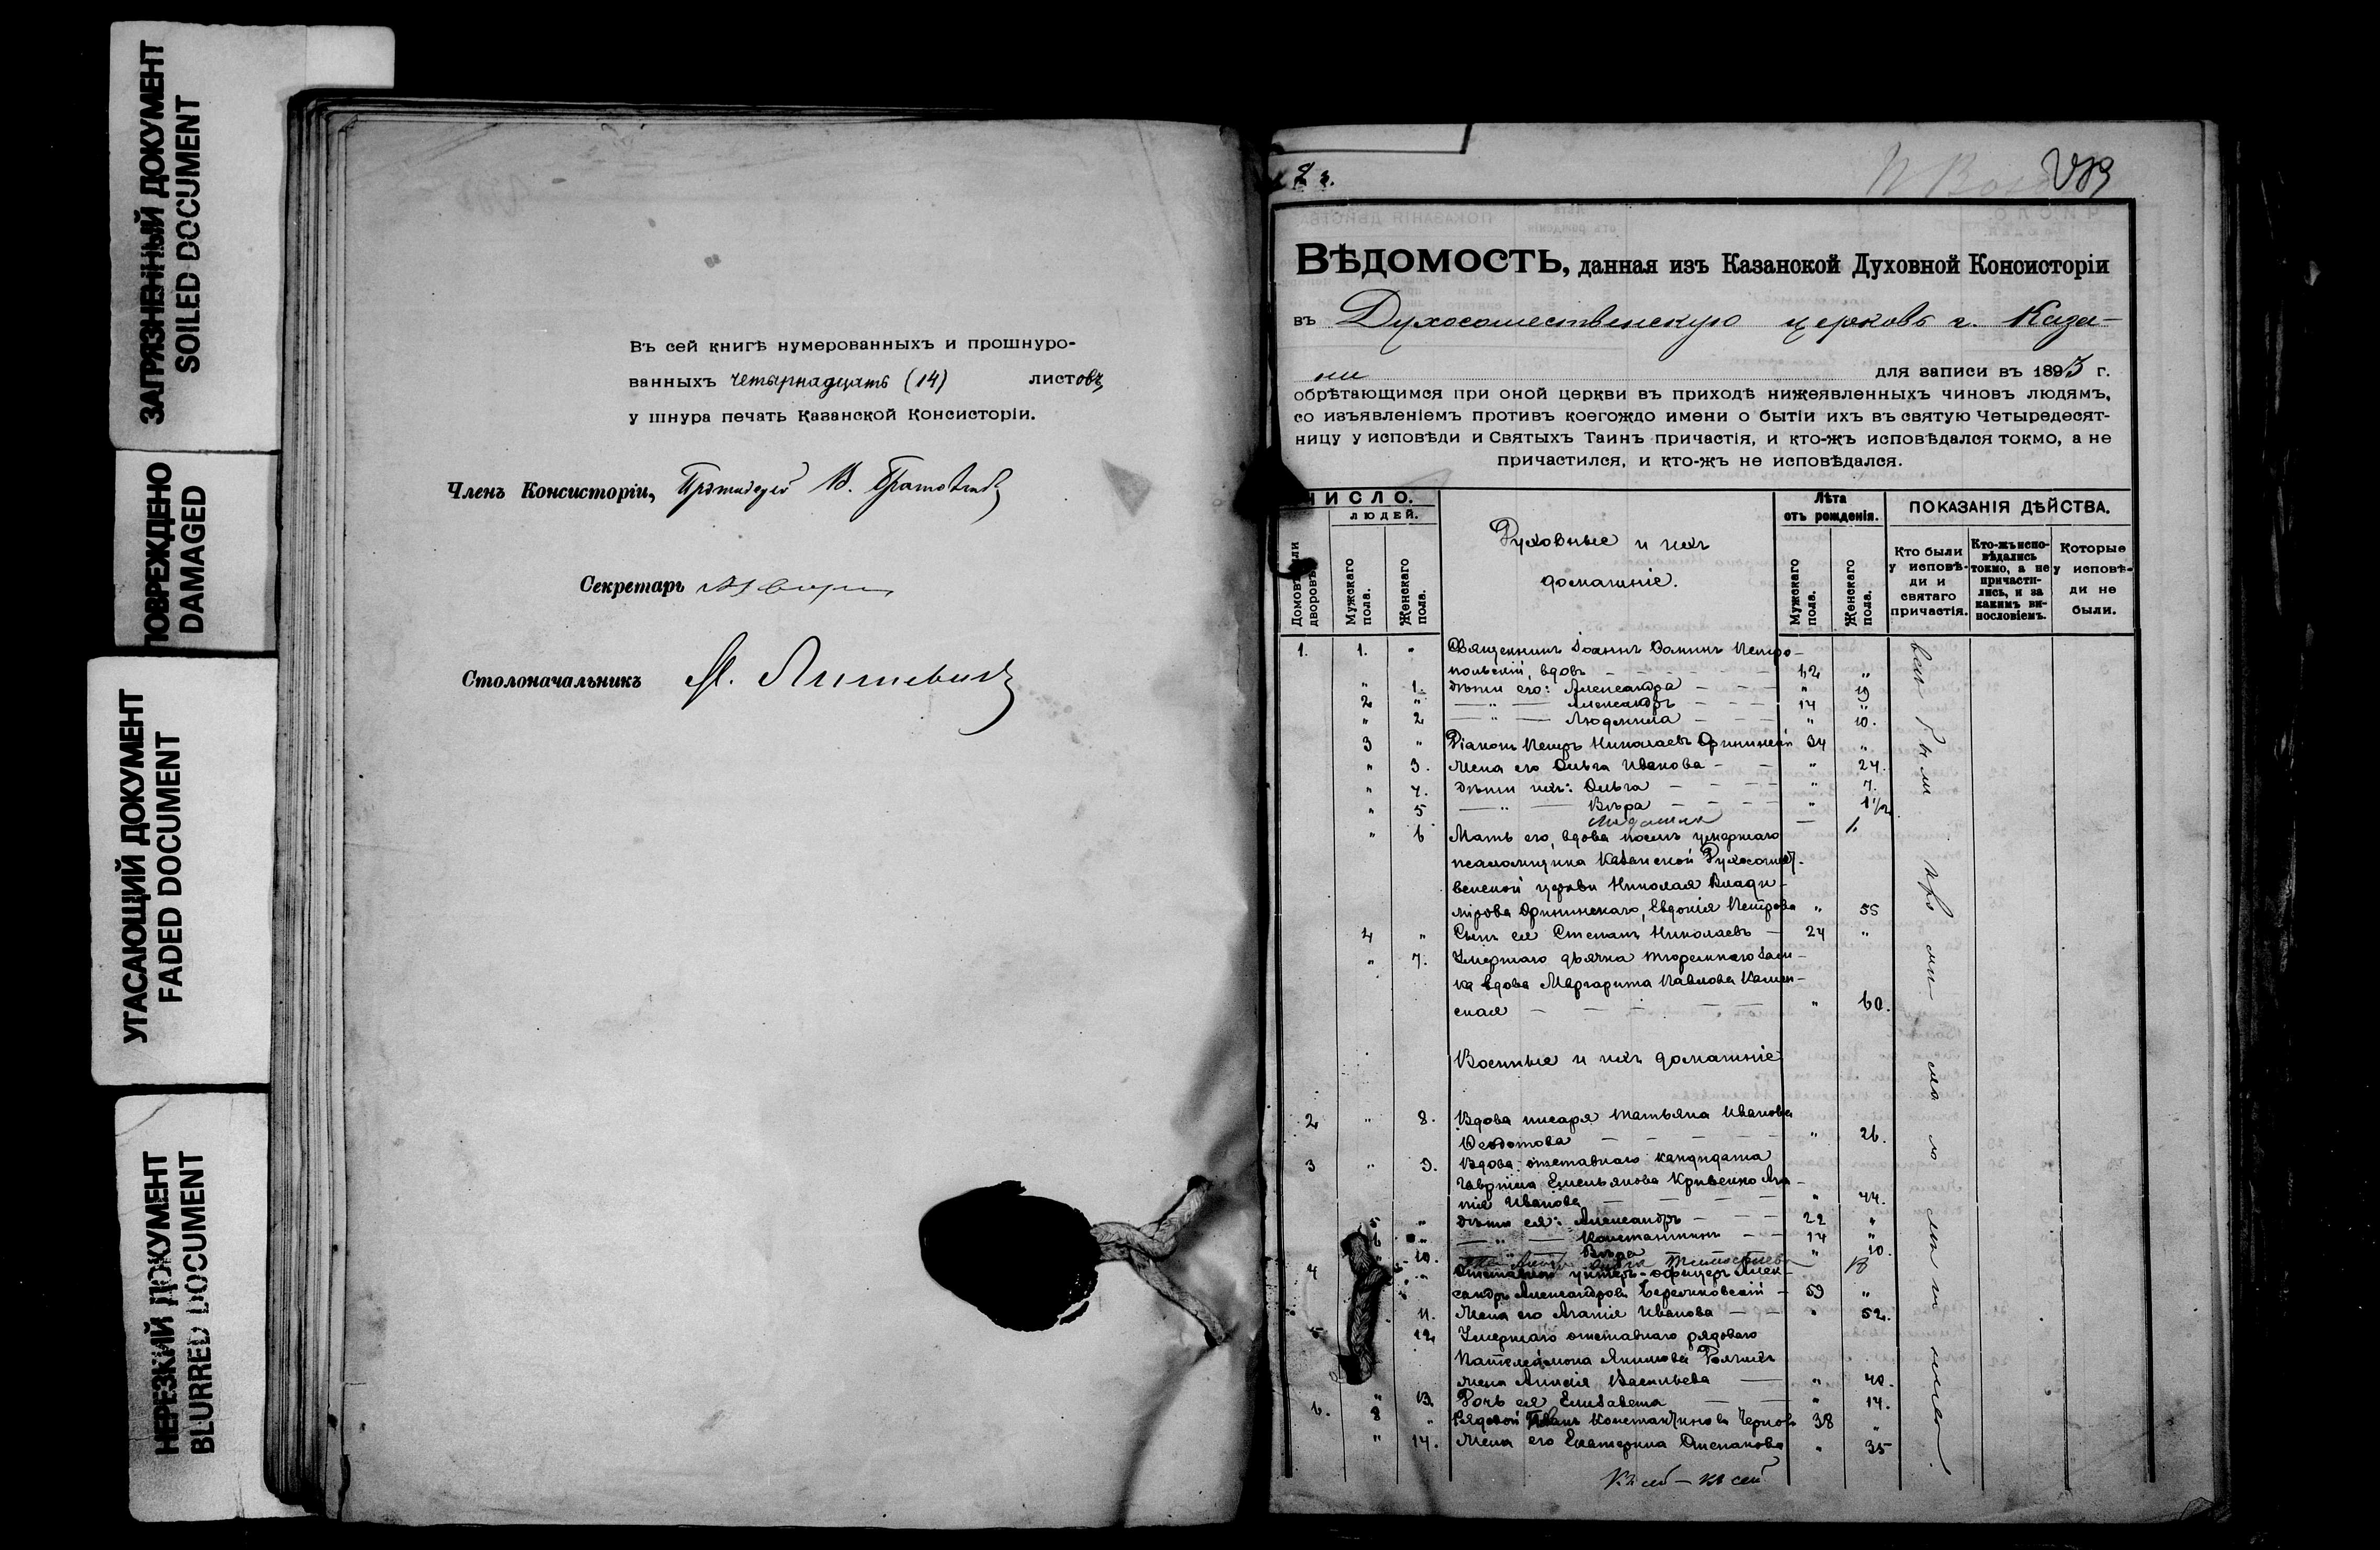 ЗАГРЯЗНЕННЫЙ ДОКУМЕНТ
SOILED DOCUMENT
ПОВРЕЖДЕНО
DAMAGED
УГАСАЮЩИЙ ДОКУМЕНТ
FADED DOCUMENT
НЕРЕЗКИЙ ДОКУМЕНТ
BLURRED DOCUMENT
Въ сей книгѣ нумерованныхъ и прошнуро-
ванныхъ четырнадцать (14) листовъ
у шнура печать Казанской Консисторіи.
Членъ Консисторіи, Протоіерей В.
Секретарь
Столоначальникъ
ВѢДОМОСТЬ, данная изъ Казанской Духовной Консисторіи
въ Духосошественскую церковь г. Каза-
ни для записи въ 1895 г.
обрѣтающимся при оной церкви въ приходѣ нижеявленныхъ чиновъ людямъ,
со изъявленіемъ противъ коегождо имени о бытіи ихъ въ святую Четыредесят-
ницу у исповѣди и Святыхъ Таинъ причастія, и кто-жъ исповѣдался токмо, а не
причастился, и кто-жъ не исповѣдался.
ЧИСЛО.
людей.
Домовъ или дворовъ.
Мужскаго пола.
Женскаго пола.
Духовные и ихъ
домашніе.
Лѣта
отъ рожденія.
Мужскаго пола.
Женскаго пола.
ПОКАЗАНІЯ ДѢЙСТВА.
Кто были у исповѣди и святаго причастія.
Кто-жъ исповѣдались токмо, а не причастились, и за какимъ винословіемъ.
Которые у исповѣди не были.
1. 1. " Священникъ Іоаннъ Петро-
польскій, вдовъ 42 "
" 1. дѣти его: Александра " 19
2 " Александръ 14 "
" 2 Людмила " 10.
3 " Діаконъ Петръ Николаевъ 34 "
" 3. Жена его Ольга Иванова " 24.
" 4. дѣти ихъ: Ольга " 7.
" 5 Вѣра " 1 1/2
" 6 Мать его, вдова послѣ умершаго
псаломщика Казанской Духосошест-
венской церкви Николая Влади-
мірова Евдокія Петрова " 55
4 " Сынъ ея Степанъ Николаевъ 24 "
" 7. Умершаго дьячка тюремнаго замка
вдова Маргарита Павлова Камен-
ская " 60.
Военные и ихъ домашніе
2 " 8. Вдова писаря Татьяна Иванова
Ѳедотова " 26.
3 " 9. Вдова отставнаго кандидата
Гавріила Емельянова Кривенко Ага-
пія Иванова " 44.
5 " дѣти ея: Александръ 22 "
6 " Константинъ 14 "
" 10. Вѣра " 10.
4 Отставной унтеръ-офицеръ Алек-
сандръ Александровъ 59 "
11. Жена его Агапія Иванова " 52.
5 12 Умершаго отставнаго рядоваго
Пантелеймона Якимова
жена Анисія Васильева " 40.
" 13. Дочь ея Елизавета " 14.
6. 8 " Рядовой Константиновъ Черновъ 38 "
" 14. Жена его Екатерина Степанова " 35